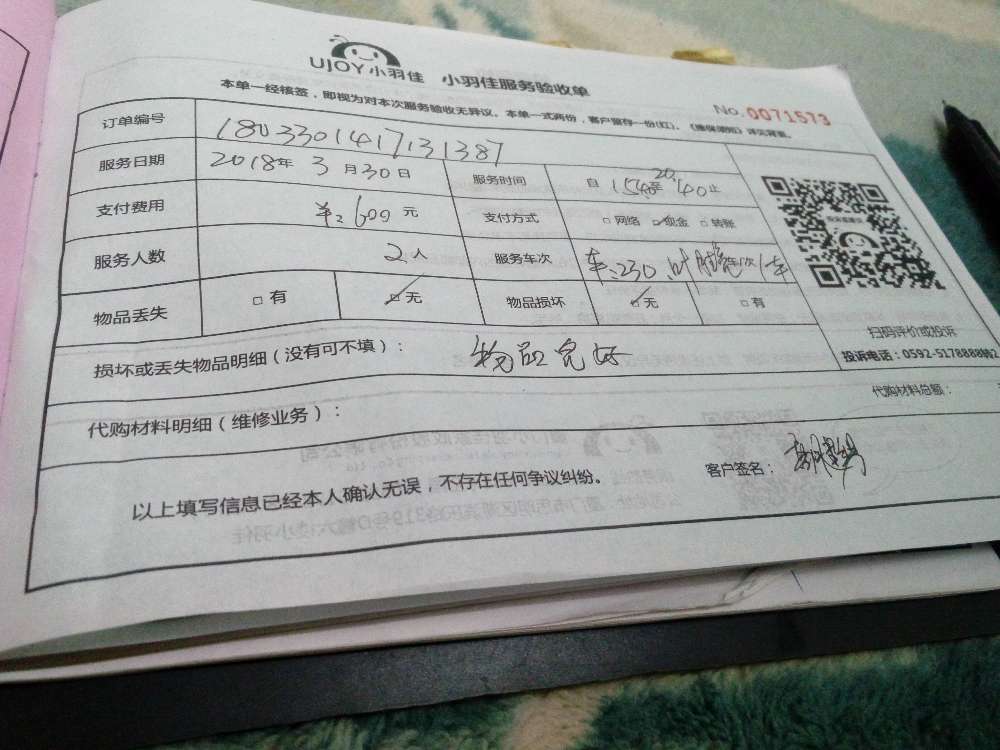 UJOY小羽佳 小羽佳服务验收单
No. 0071573
本单一经核签，即视为对本次服务验收无异议。本单一式两份，客户留存一份(红)。《维保须知》详见背面。
订单编号 1803301417131387
服务日期 2018年 3 月 30 日 服务时间 自 至 20 40 止
支付费用 600 元 支付方式 □ 网络 □ 现金 □ 转账
服务人数 2 人 服务车次 车 230
物品丢失 □ 有 □ 无 物品损坏 □ 无 □ 有
扫码评价或投诉
损坏或丢失物品明细（没有可不填）： 物品完好
投诉电话：0592-5178888转2
代购材料明细（维修业务）： 代购材料总额：
以上填写信息已经本人确认无误，不存在任何争议纠纷。 客户签名：